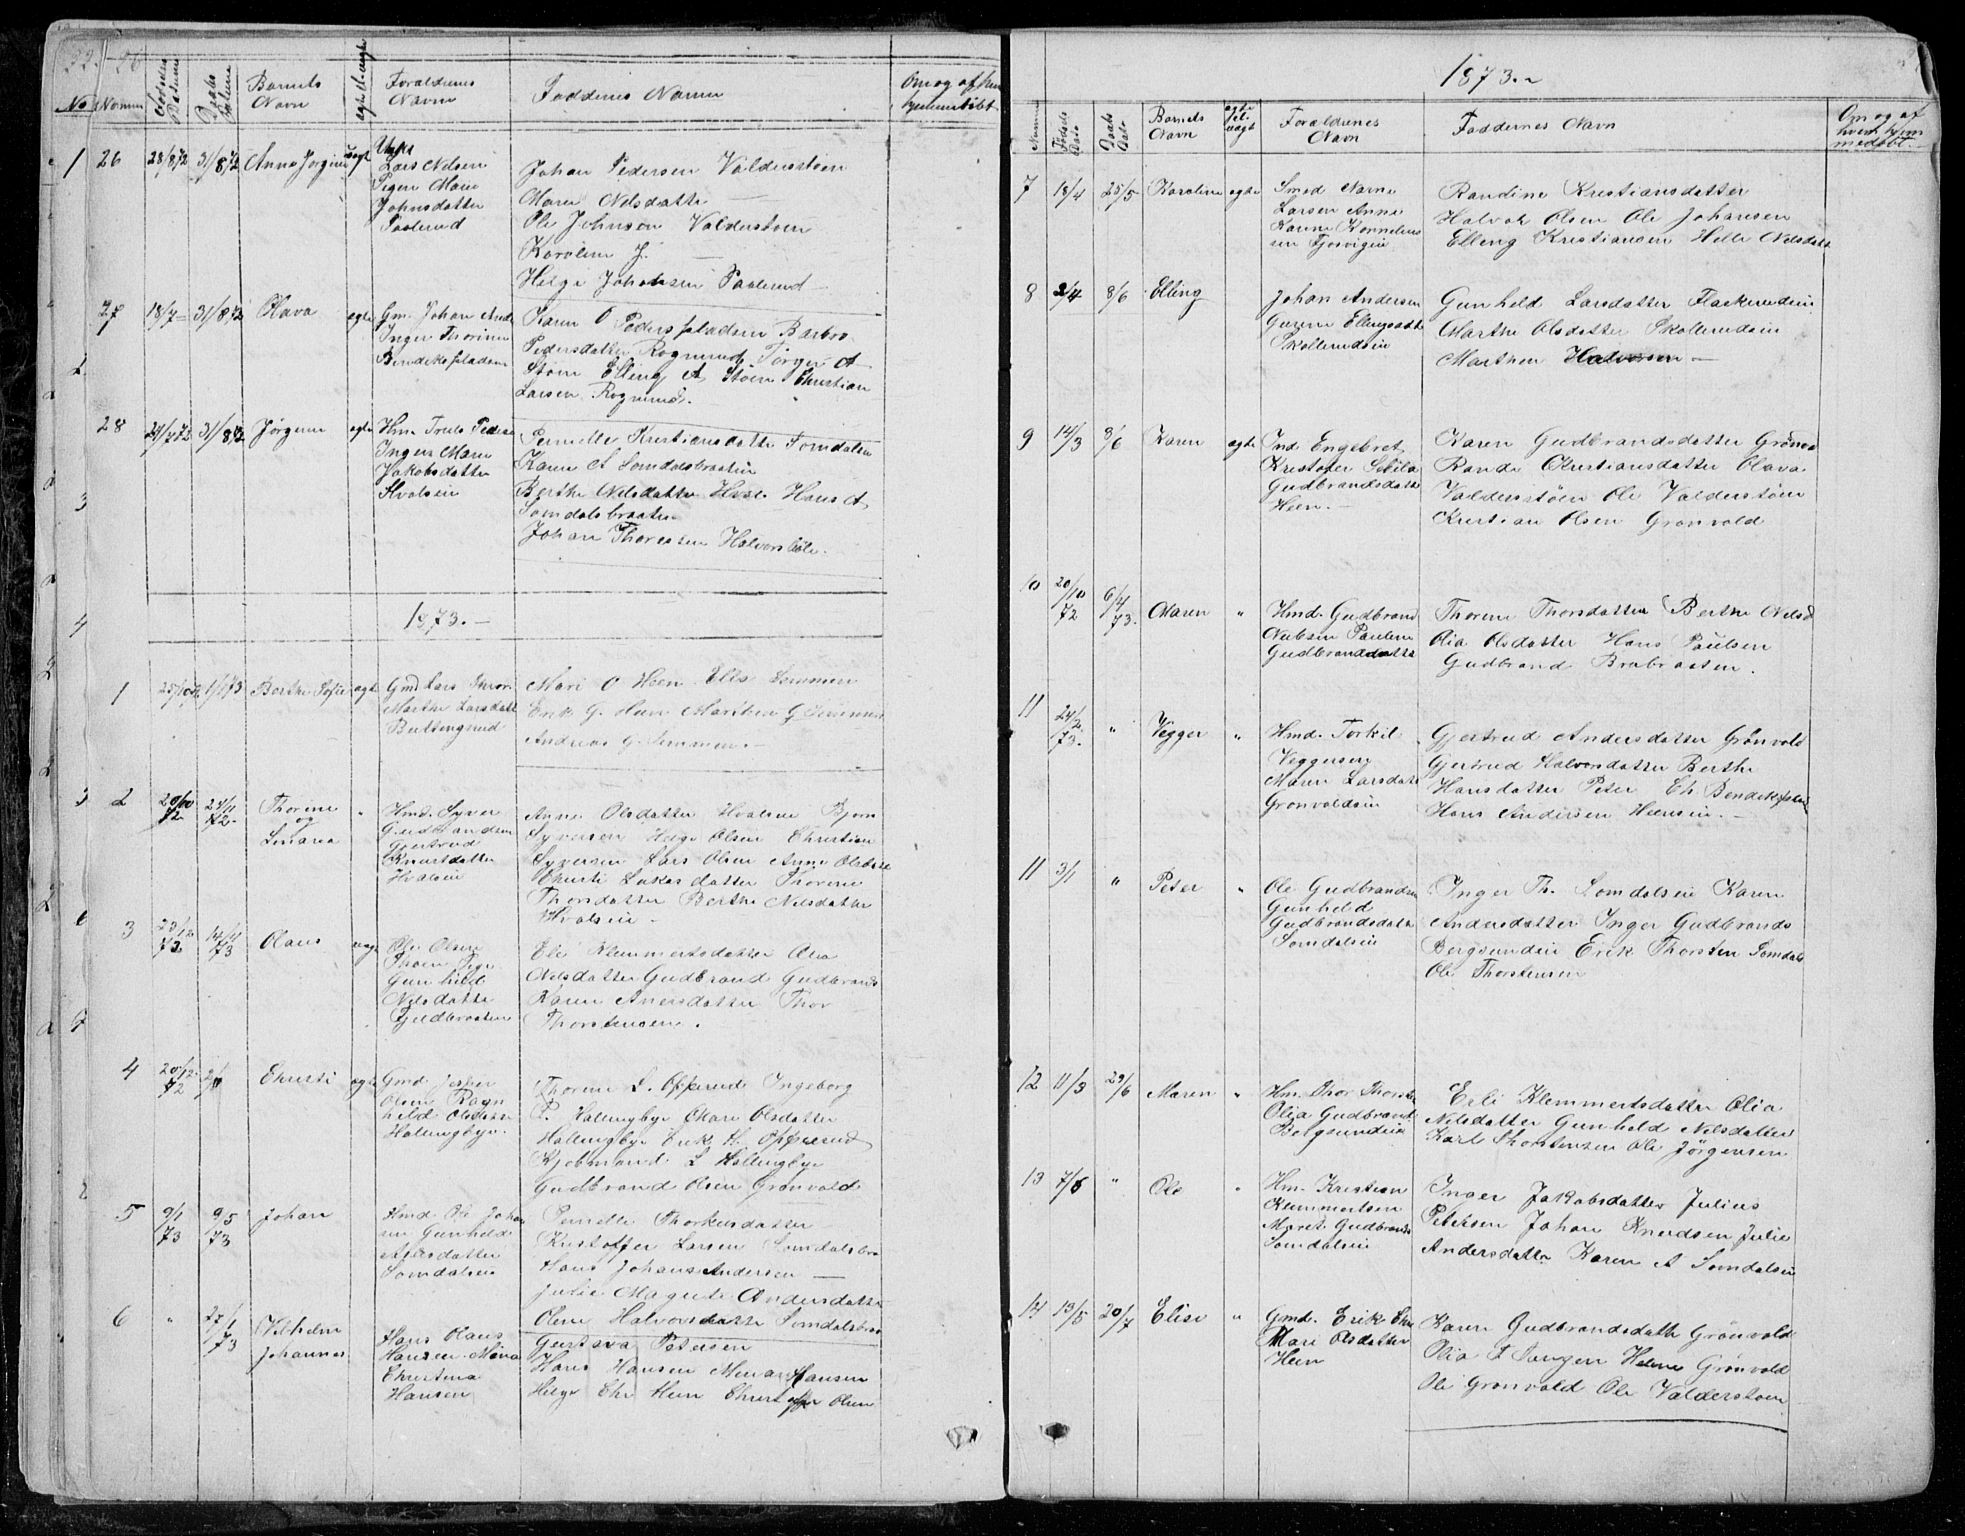 No
Nomer
Fødsels
Datum
Daabs
Datum
Barnets
Navn
Forældrenes
Navne
Faddernes Navne
Om og af hvem
hjemmedøbt
26 28/8 72 31/8 72 Anne Jørgine uægt
Lars Nilsen
Pigen Mari
Johnsdatter
Paalerud
Johan Pedersen Valderstøen
Maren Nilsdatter —
Ole Johnsen Valderstøen
Karoline J. —
Helge Johnsen Paalerud
27 18/7 31/8 72 Olava ægte
Gm. Johan And
Inger Thorine
Bendikspladsen
Karen O Pederspladsen Barbro
Pedersdatter Rognerud Jørgen A
Støen Elling A Støen Christian
Larsen Rognerud.
28 24/7 72 31/8 72 Jørgine ægte
Hm. Truls Peders
Inger Marie
Jakobsdatter
Hvalsen
Pernille Kristiansdatte Somdalen
Karen A Somdalsbraaten
Berthe Nilsdatter Hval. Hans A
Somdalsbraaten
Johan Thoresen Halvorsbøle.
1873.—
1 25/10 72 1/1 73 Berthe Sofie ægte
Gmd Lars Thror
Marthe Larsdatt
Buttingsrud
Mari O Heen Ells Semmen
Erik G. Heen Marthea G Semmen
Andreas G. Semmen.—
2 20/10 72 24/11 72 Thorine
og
Linarea
Hmd. Syver
Gudbrandsen
Gjertrud
Knutsdatter
Hvalsen
Anne Olsdatter Hvalsen Bjørn
Syversen Helge Olsen Christian
Syversen Lars Olsen Anne Olsdatt
Christi Lukasdatter Thorine
Thorsdatter Berthe Nilsdatter
Hvalsen.
3 23/12 72 14/4 73 Olaus uægt
Ole Olsen
Støen Pige
Gunhild
Nilsdatter
Fjeldbraaten
Eli Klemmertsdatter Olia
Nilsdatter Gudbrand Gudbrands
Karen Anersdatter Thor
Thorstensen.
4 20/12 72 Christi ægte
Gmd Jesper
Olsen Ragn
hild Olsdatter
Hallingbye.
Thorine L. Opperud Ingeborg
P. Hallingbye Mari Olsdatter
Hallingbye Erik H. Opperud
Kjøbmand L Hallingbye
Gudbrand Olsen Grønvold
5 9/1 73 9/5 73 Johan
Hmd Ole Johan
sen Gunhild
Nilsdatter
Somdalsen
Pernille Thorkilsdatter
Kristoffer Larsen Somdalsbra
Hans Johans Andersen —
Julie Magrete Andersdatter
Oline Halvorsdatter Somdalsbraa
6 " 27/1 73 Vilhelm
Johannes
Hans Olaus
Hansen Mina
Christina
Hansen
Gustava Petersen
Hans Hansen Mina Hansen
Helge Chr Heen Christoffer Olsen
1873.
Nommer
Fødsels
Dato
Daabs
Dato
Barnets
Navn
Forældrenes
Navn
Faddernes Navn
Om og af
hvem hjem
medøbt.
7 18/4 25/5 Karoline ægte
Smed Narve
Larsen Anne
Karine Kornelius
sen Tjosvigen
Randine Kristiansdatter
Halvor Olsen Ole Johansen
Elling Kristiansen Helle Nilsdatt
8 2/4 8/6 Elling
Johan Andersen
Gurine Ellingsdatt
Skollerudsen
Gunhild Larsdatter Flaskerudsen
Marthe Olsdatter Skollerudsen
Marthea Halvorsen —
9 14/3 8/6 Karen ægte
Ind. Engebret
Kristofer Sebila
Gudbrandsdatt
Heen.—
Karen Gudbrandsdatter Grønvo
Rande Christiansdatter Olava
Valderstøen Ole Valderstøen
Kristian Olsen Grønvold
10 20/10 72 6/4 73. Maren "
Hmd. Gudbrand
Nilsen Pauline
Gudbrandsdatter
Thorine Thorsdatter Berthe Nilsd
Olia Olsdatter Hans Paulsen
Gudbrand Brabraaten.
11 24/2 73. " Vegger "
Hmd. Torkil
Veggersen
Maren Larsdatt
Grønvoldsen
Gjertrud Andersdatter Grønvold
Gjertrud Halvorsdatter Berthe
Hansdatter Peter Ch. Bendikspla
Hans Andersen Heensen.—
11 3/1 " Peter "
Ole Gudbrandsn
Gunhild
Gudbrandsdatt
Somdalsen
Inger Th. Somdalsen Karen
Andersdatter Inger Gudbrands
Bergsundsen Erik Thorsten Somdals
Ole Thorstensen
12 11/3 29/6 Maren "
Hm. Thor Thorste
Olia Gudbrand
Bergsundsen
Erli Klemmertsdatter Olia
Nilsdatter Gunhild Nilsdatter
Karl Thorstensen Ole Jørgensen
13 7/6 " Ole "
Hm. Kristian
Klemmertsen
Maret Gudbrands
Somdalsen
Inger Jakobsdatter Julius
Petersen Johan Knudsen Julie
Andersdatter Karen A Somdalsen
14 13/5 20/7 Elise "
Gmd. Erik Chr
Mari Olsdatter
Heen
Karen Gudbrandsdatte Grønvold
Olia F Tangen Helene Grønvold
Ole Grønvold Ole Valderstøen